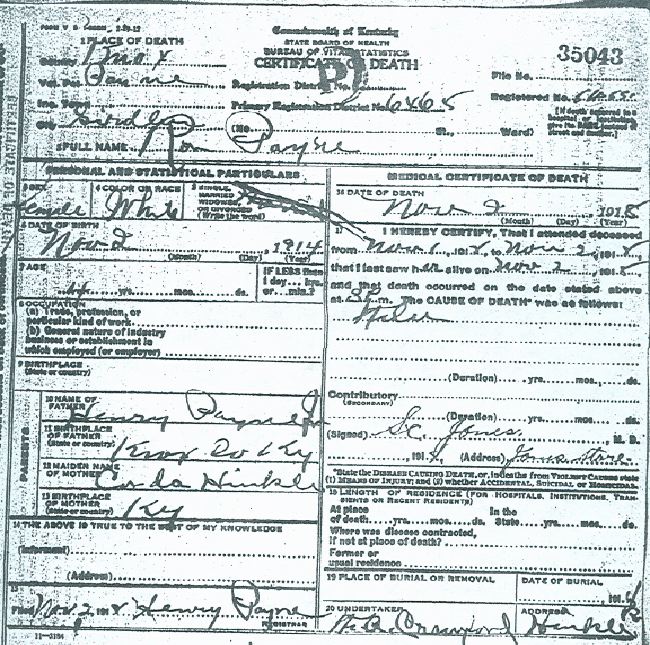 Commonwealth of Kentucky
STATE BOARD OF HEALTH
BUREAU OF VITAL STATISTICS
CERTIFICATE OF DEATH
35043
File No.
1 PLACE OF DEATH
County Knox
Vot. Pct. Payne
Registration District No.
Inc. Town
Primary Registration District No. 6465
Registered No.
City
(No.
St., Ward)
[If death occurred in a hospital or institution, give its NAME instead of street and number.]
2 FULL NAME Payne
PERSONAL AND STATISTICAL PARTICULARS
3 SEX
4 COLOR OR RACE White
5 SINGLE, MARRIED, WIDOWED, OR DIVORCED (Write the word)
6 DATE OF BIRTH
Nov 2, 1914
(Month) (Day) (Year)
7 AGE
IF LESS than 1 day... hrs. or... min.?
yrs. mos. ds.
8 OCCUPATION
(a) Trade, profession, or particular kind of work
(b) General nature of industry business or establishment in which employed (or employer)
9 BIRTHPLACE
(State or country)
PARENTS
10 NAME OF FATHER Henry Payne Jr
11 BIRTHPLACE OF FATHER (State or country) Knox Co Ky
12 MAIDEN NAME OF MOTHER Hinkle
13 BIRTHPLACE OF MOTHER (State or country) Ky
14 THE ABOVE IS TRUE TO THE BEST OF MY KNOWLEDGE
(Informant)
(Address)
15
Filed Nov 2 191 Henry Payne
REGISTRAR
11-3184
MEDICAL CERTIFICATE OF DEATH
16 DATE OF DEATH
Nov 2 191
(Month) (Day) (Year)
17 I HEREBY CERTIFY, That I attended deceased
from Nov 1, 191 , to Nov 2, 191
that I last saw h alive on Nov 2, 191
and that death occurred on the date stated above
at m. The CAUSE OF DEATH* was as follows:
(Duration) yrs. mos. ds.
Contributory
(SECONDARY)
(Duration) yrs. mos. ds.
(Signed) Jones, M. D.
, 191 (Address) Jones Store
*State the DISEASE CAUSING DEATH, or, in deaths from VIOLENT CAUSES state
(1) MEANS OF INJURY; and (2) whether ACCIDENTAL, SUICIDAL or HOMICIDAL.
18 LENGTH OF RESIDENCE (FOR HOSPITALS, INSTITUTIONS, TRANSIENTS OR RECENT RESIDENTS)
At place of death yrs. mos. ds. In the State yrs. mos. ds.
Where was disease contracted, if not at place of death?
Former or usual residence
19 PLACE OF BURIAL OR REMOVAL
DATE OF BURIAL
191
20 UNDERTAKER
Crawford
ADDRESS
Hinkle